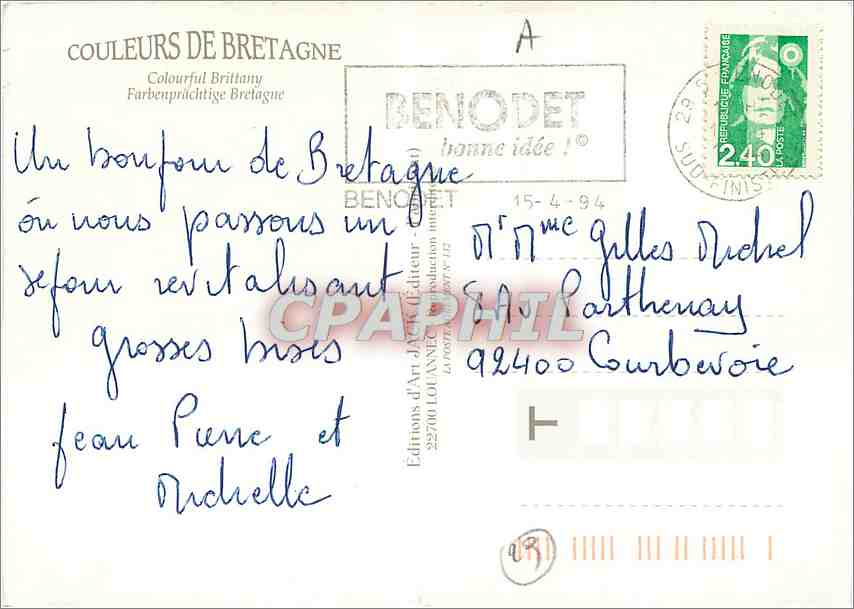 COULEURS DE BRETAGNE
Colourful Brittany
Farbenprächtige Bretagne
A
BENODET
bonne idée ! ©
BENODET
15-4-94
29
SUD FINIST
RÉPUBLIQUE FRANÇAISE
2,40
LA POSTE
Un bonjour de Bretagne
où nous passons un
séjour revitalisant
grosses bises
Jean Pierre et
Michelle
Editions d'Art JACK (Editeur
22700 LOUANNEC Reproduction
LA POSTE AGRÉMENT N° 112
Mr Mme Gilles Michel
8 Av Parthenay
92400 Courbevoie
T
CPAPHIL